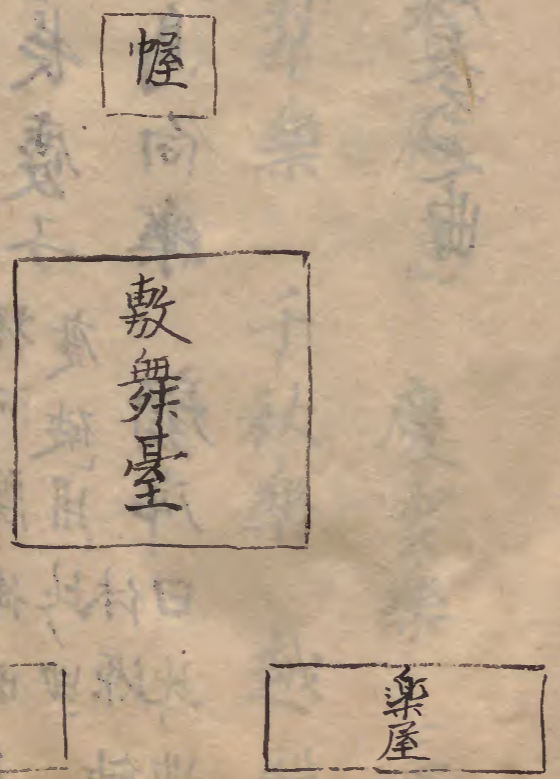 幄
敷舞臺
楽屋